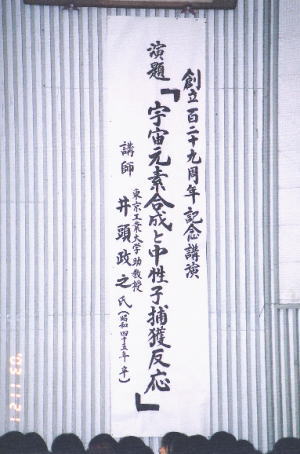 創立百二十九周年記念講演
演題「宇宙元素合成と中性子捕獲反応」
講師 東京工業大学助教授 井頭政之氏(昭和四十五年卒)
'03 11 21